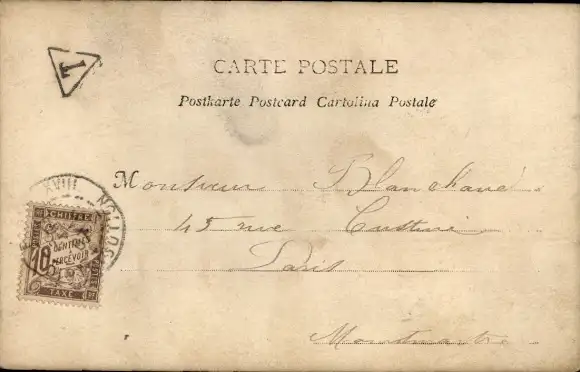 T
CARTE POSTALE
Postkarte Postcard Cartolina Postale
Monsieur Blanchard
45 rue Custine
Paris
Montmartre
XVIII
CHIFFRE
10 CENTIMES
À PERCEVOIR
TAXE